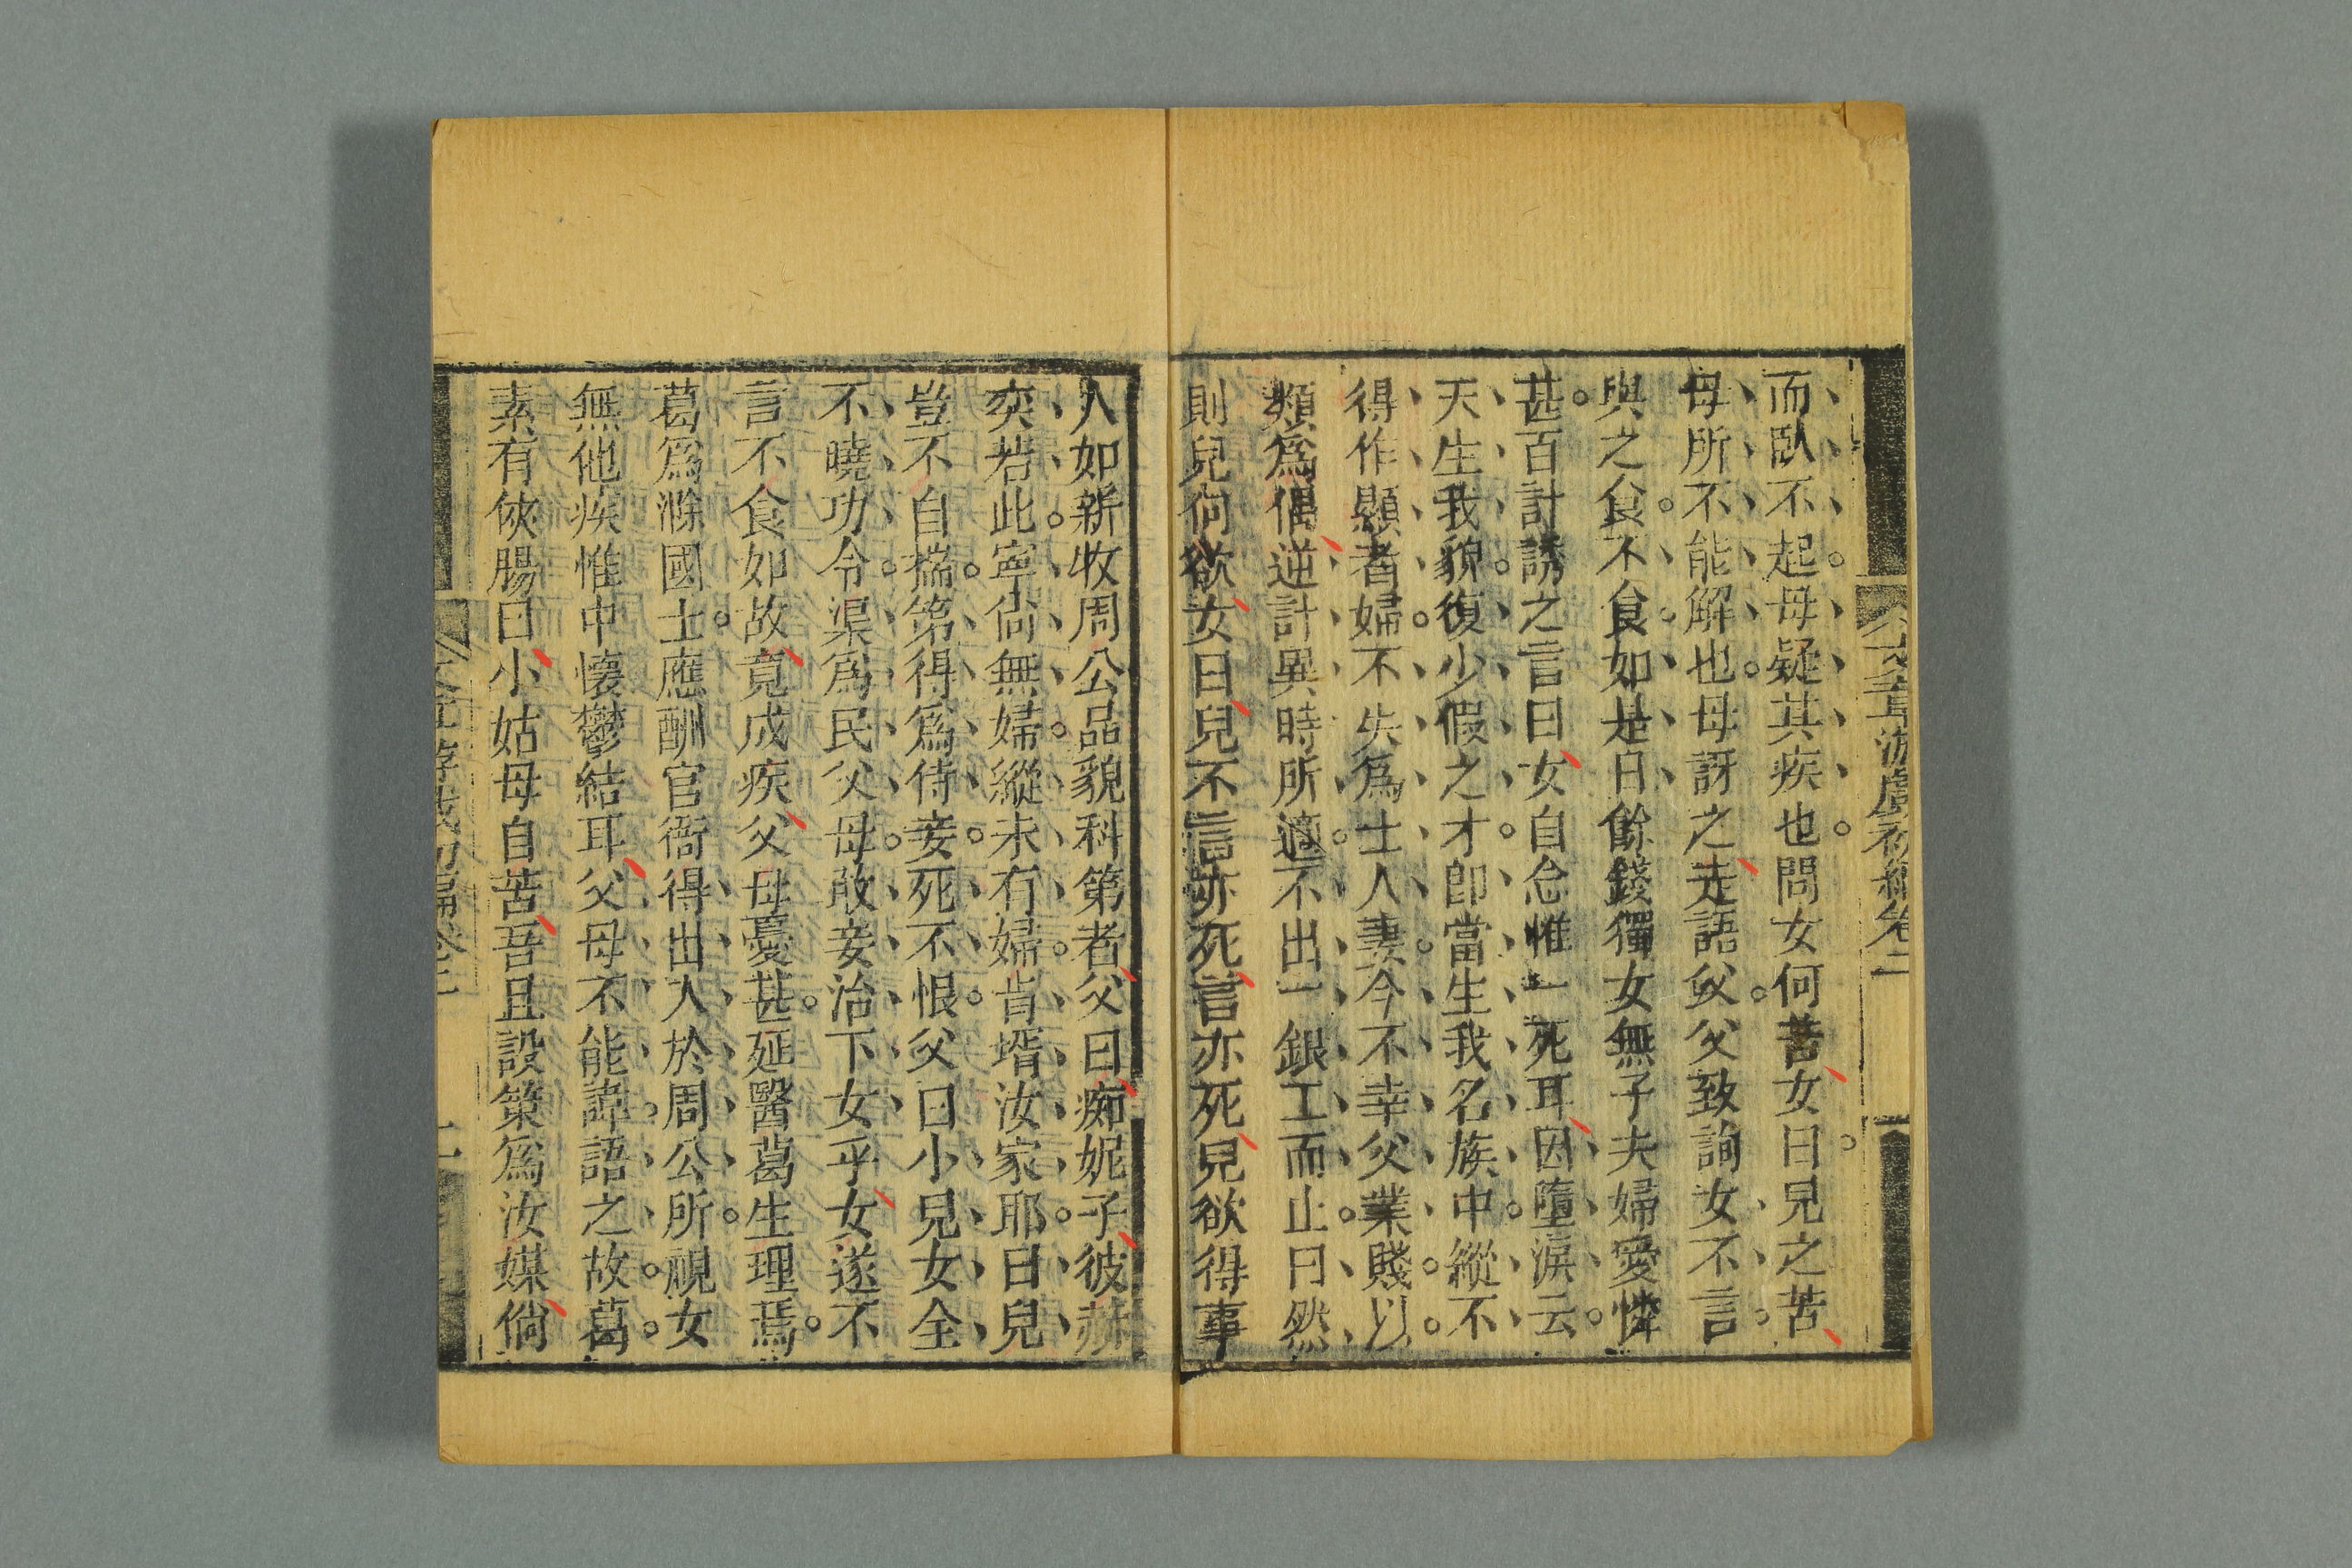 而臥不起母疑其疾也問女何苦女曰兒之苦
母所不能解也母訝之走語父父致詢女不言
與之食不食如是日餘錢獨女無子夫婦愛憐
甚百計誘之言曰女自念惟一死耳因墮淚云
天生我貌復少假之才卽當生我名族中縱不
得作顯者婦不失爲士人妻今不幸父業賤以
類爲偶逆計異時所適不出一銀工而止曰然
則兒何欲女曰兒不言亦死言亦死兒欲得事
人如新收周公品貌科第者父曰痴妮子彼赫
奕若此寧尙無婦縱未有婦肯壻汝家耶曰兒
豈不自揣第得爲侍妾死不恨父曰小兒女全
不曉功令渠爲民父母敢妾治下女乎女遂不
言不食如故竟成疾父母憂甚延醫葛生理焉
葛爲滁國士應酬官衙得出入於周公所覘女
無他疾惟中懷鬱結耳父母不能諱語之故葛
素有俠腸曰小姑母自苦吾且設策爲汝媒倘